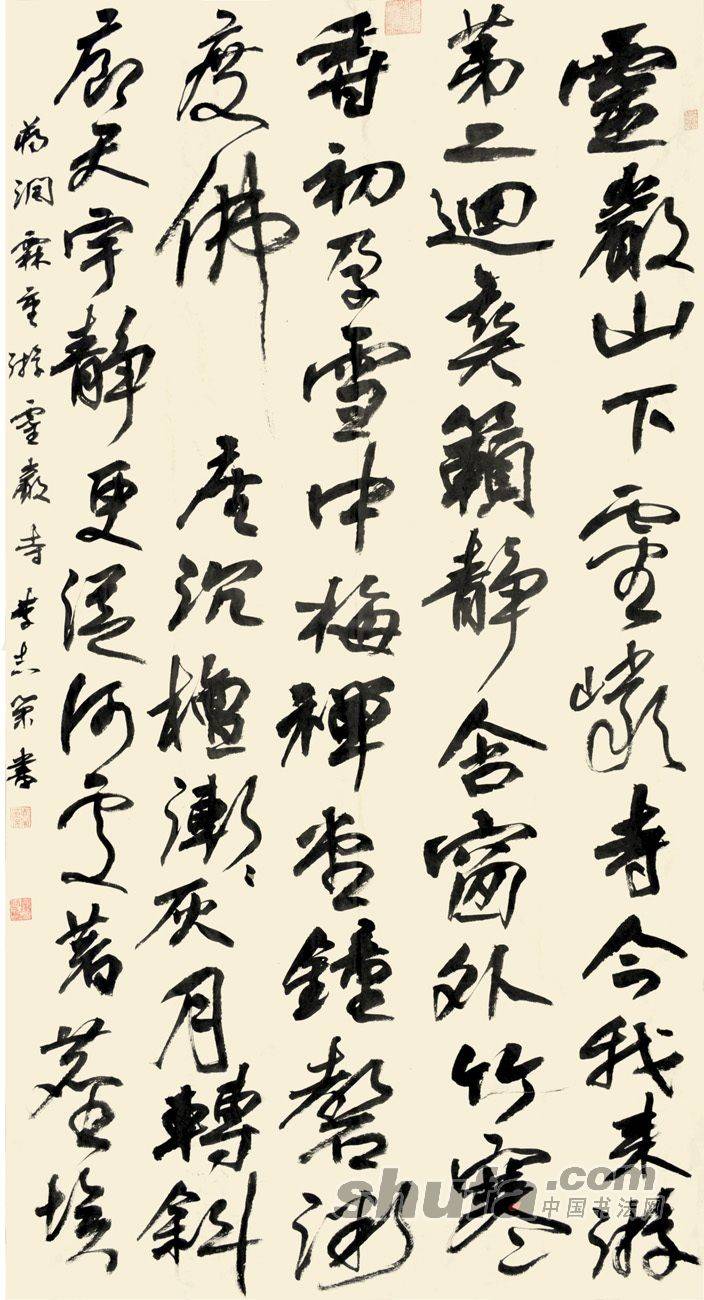 靈巖山下靈巖寺今我來游
第二迴爽籟静含窗外竹寒
香初孕雪中梅禪堂鐘磬
度佛座沉檀漸漸灰月轉斜
廊天宇静更從何處著塵埃
蔣澗霖重游靈巖寺 李志策書
shufa.com
中国书法网